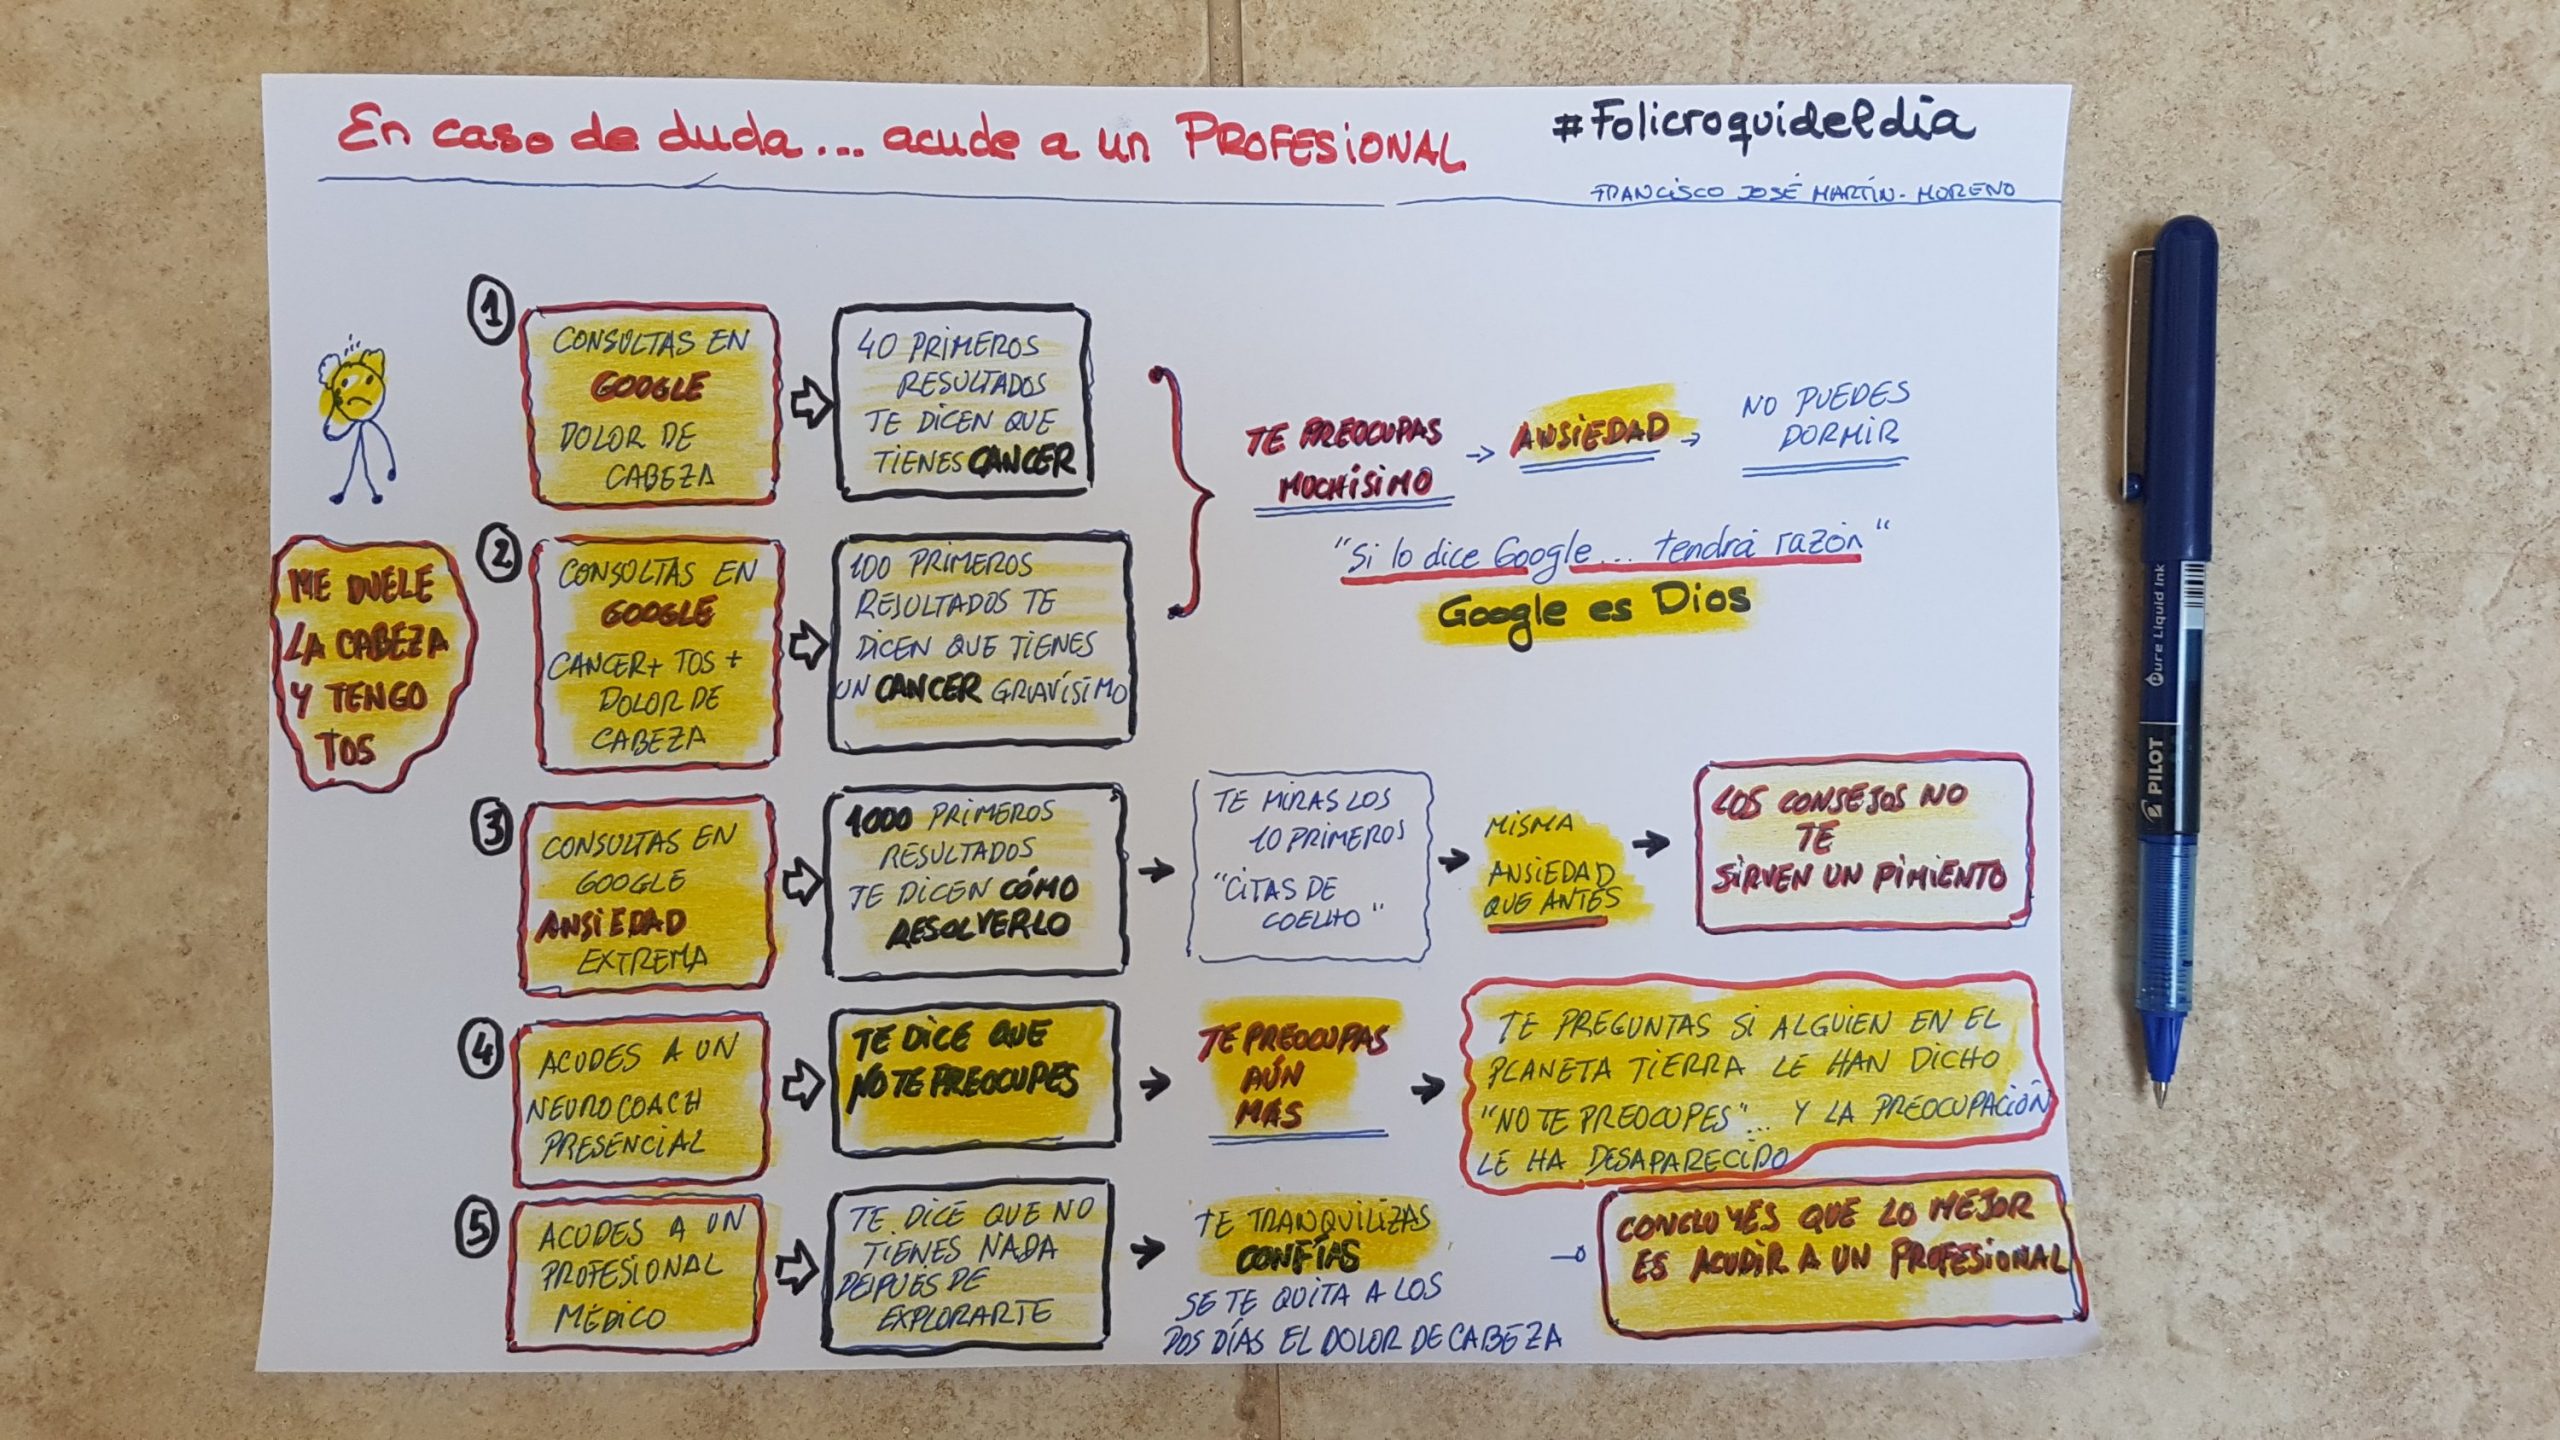 En caso de duda... acude a un PROFESIONAL
#Folicroquideldia
FRANCISCO JOSÉ MARTÍN-MORENO
ME DUELE
LA CABEZA
Y TENGO
TOS
1
CONSULTAS EN
GOOGLE
DOLOR DE
CABEZA
40 PRIMEROS
RESULTADOS
TE DICEN QUE
TIENES CANCER
2
CONSULTAS EN
GOOGLE
CANCER + TOS +
DOLOR DE
CABEZA
100 PRIMEROS
RESULTADOS TE
DICEN QUE TIENES
UN CANCER GRAVÍSIMO
TE PREOCUPAS
MUCHÍSIMO
ANSIEDAD
NO PUEDES
DORMIR
"Si lo dice Google... tendrá razón"
Google es Dios
3
CONSULTAS EN
GOOGLE
ANSIEDAD
EXTREMA
1000 PRIMEROS
RESULTADOS
TE DICEN CÓMO
RESOLVERLO
TE MIRAS LOS
10 PRIMEROS
"CITAS DE
COELHO"
MISMA
ANSIEDAD
QUE ANTES
LOS CONSEJOS NO
TE
SIRVEN UN PIMIENTO
4
ACUDES A UN
NEUROCOACH
PRESENCIAL
TE DICE QUE
NO TE PREOCUPES
TE PREOCUPAS
AÚN
MÁS
TE PREGUNTAS SI ALGUIEN EN EL
PLANETA TIERRA LE HAN DICHO
"NO TE PREOCUPES"... Y LA PREOCUPACIÓN
LE HA DESAPARECIDO
5
ACUDES A UN
PROFESIONAL
MÉDICO
TE DICE QUE NO
TIENES NADA
DESPUÉS DE
EXPLORARTE
TE TRANQUILIZAS
CONFÍAS
SE TE QUITA A LOS
DOS DÍAS EL DOLOR DE CABEZA
CONCLUYES QUE LO MEJOR
ES ACUDIR A UN PROFESIONAL
PILOT
Pure Liquid Ink